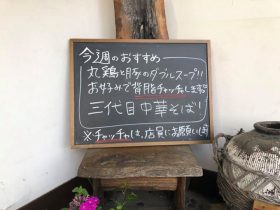 今週のおすすめ
丸鶏と豚のダブルスープ!!
お好みで背脂チャッチャします。
三代目中華そば!
※チャッチャは、店員にお願い